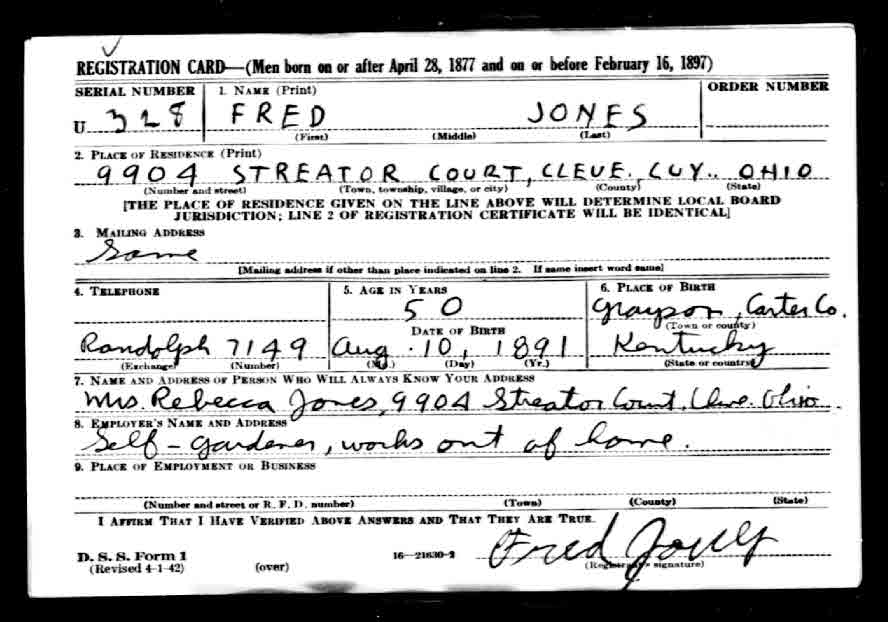 REGISTRATION CARD—(Men born on or after April 28, 1877 and on or before February 16, 1897)
SERIAL NUMBER 1. NAME (Print) ORDER NUMBER
U 328 FRED JONES
(First) (Middle) (Last)
2. PLACE OF RESIDENCE (Print)
9904 STREATOR COURT, CLEVE. CUY.. OHIO
(Number and street) (Town, township, village, or city) (County) (State)
[THE PLACE OF RESIDENCE GIVEN ON THE LINE ABOVE WILL DETERMINE LOCAL BOARD
JURISDICTION; LINE 2 OF REGISTRATION CERTIFICATE WILL BE IDENTICAL]
3. MAILING ADDRESS
Same
[Mailing address if other than place indicated on line 2. If same insert word same]
4. TELEPHONE 5. AGE IN YEARS 6. PLACE OF BIRTH
50 Grayson, Carter Co.
DATE OF BIRTH (Town or county)
Randolph 7149 Aug. 10, 1891 Kentucky
(Exchange) (Number) (Mo.) (Day) (Yr.) (State or country)
7. NAME AND ADDRESS OF PERSON WHO WILL ALWAYS KNOW YOUR ADDRESS
Mrs. Rebecca Jones, 9904 Streator Court, Cleve. Ohio
8. EMPLOYER'S NAME AND ADDRESS
Self - gardener, works out of home.
9. PLACE OF EMPLOYMENT OR BUSINESS
(Number and street or R. F. D. number) (Town) (County) (State)
I AFFIRM THAT I HAVE VERIFIED ABOVE ANSWERS AND THAT THEY ARE TRUE.
D. S. S. Form 1 16—21630-2 Fred Jones
(Revised 4-1-42) (over) (Registrant's signature)